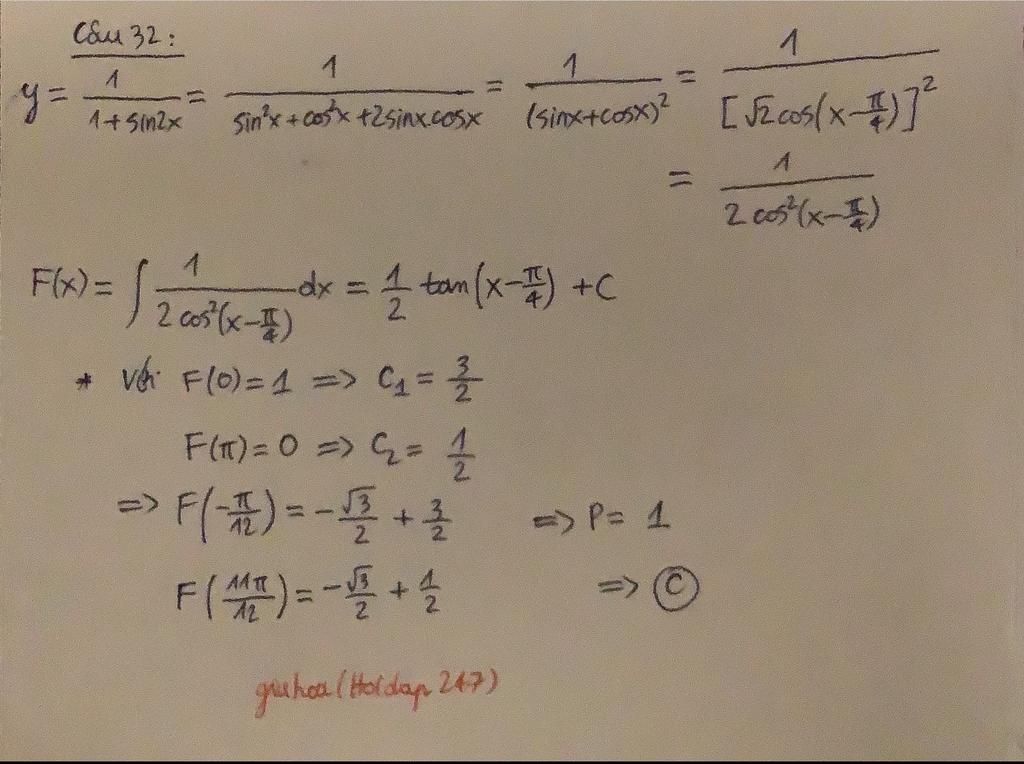 Câu 32:
y = 1/(1 + sin2x) = 1/(sin²x + cos²x + 2sinx.cosx) = 1/(sinx + cosx)² = 1/[√2cos(x - π/4)]²
= 1/(2cos²(x - π/4))
F(x) = ∫ 1/(2cos²(x - π/4)) dx = 1/2 tan(x - π/4) + C
* Với F(0) = 1 => C₁ = 3/2
F(π) = 0 => C₂ = 1/2
=> F(-π/12) = -√3/2 + 3/2 => P = 1
F(11π/12) = -√3/2 + 1/2 => C
(Hoidap 247)